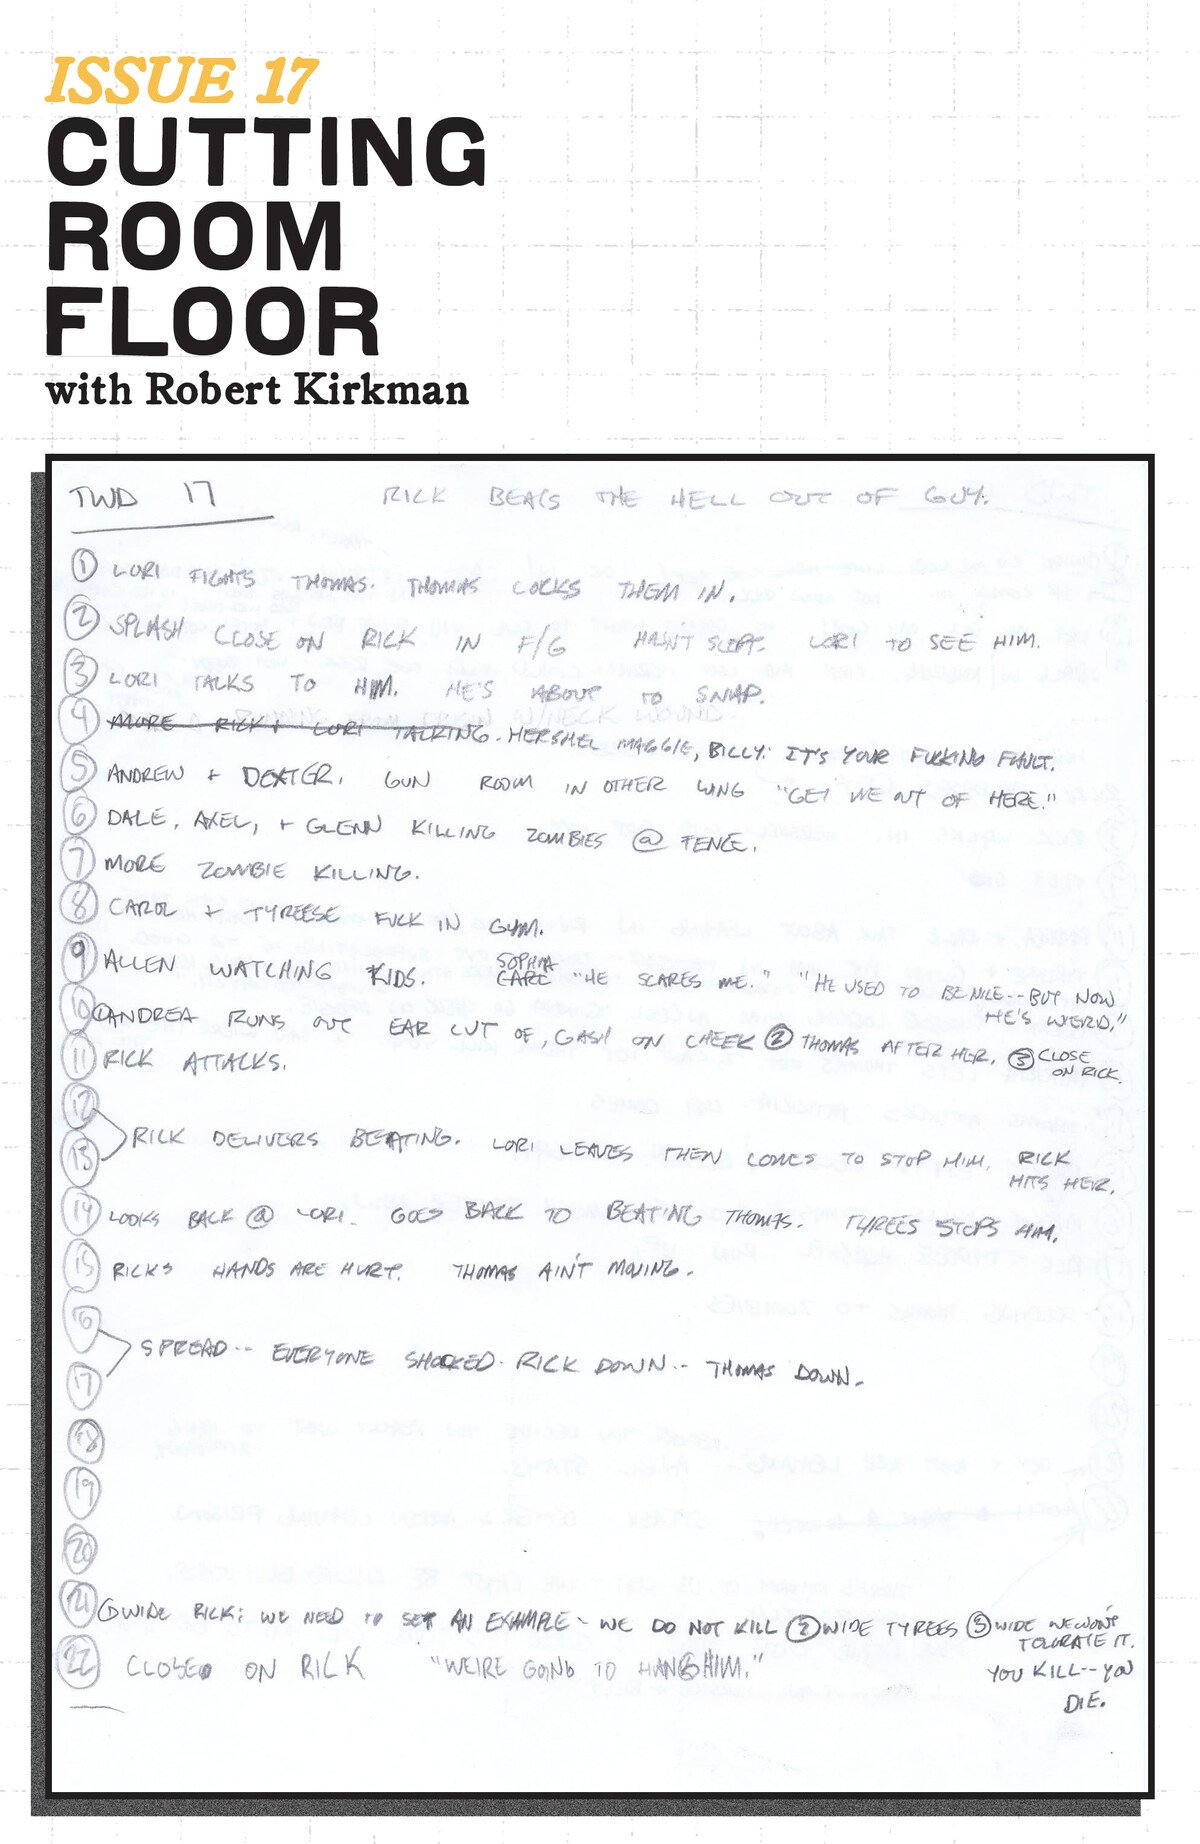 ISSUE 17
CUTTING
ROOM
FLOOR
with Robert Kirkman
TWD 17 RICK BEATS THE HELL OUT OF GUY.
① LORI FIGHTS THOMAS. THOMAS LOCKS THEM IN.
② SPLASH CLOSE ON RICK IN F/G HASN'T SLEPT. LORI TO SEE HIM.
③ LORI TALKS TO HIM. HE'S ABOUT TO SNAP.
④ MORE RICK + LORI TALKING. HERSHEL MAGGIE, BILLY: IT'S YOUR FUCKING FAULT.
⑤ ANDREW + DEXTER. GUN ROOM IN OTHER WING "GET ME OUT OF HERE."
⑥ DALE, AXEL, + GLENN KILLING ZOMBIES @ FENCE.
⑦ MORE ZOMBIE KILLING.
⑧ CAROL + TYREESE FUCK IN GYM.
⑨ ALLEN WATCHING KIDS. SOPHIA CARL "HE SCARES ME." "HE USED TO BE NICE -- BUT NOW
HE'S WEIRD."
⑩ ① ANDREA RUNS OUT EAR CUT OF, GASH ON CHEEK ② THOMAS AFTER HER. ③ CLOSE
ON RICK.
⑪ RICK ATTACKS.
⑫
⑬ RICK DELIVERS BEATING. LORI LEAVES THEN COMES TO STOP HIM. RICK
HITS HER.
⑭ LOOKS BACK @ LORI. GOES BACK TO BEATING THOMAS. TYREES STOPS HIM.
⑮ RICK'S HANDS ARE HURT. THOMAS AIN'T MOVING.
⑯
⑰ SPREAD -- EVERYONE SHOCKED. RICK DOWN -- THOMAS DOWN.
⑱
⑲
⑳
㉑ ① WIDE RICK: WE NEED TO SET AN EXAMPLE - WE DO NOT KILL ② WIDE TYREES ③ WIDE WE WON'T
TOLERATE IT.
YOU KILL -- YOU
DIE.
㉒ CLOSE ON RICK "WE'RE GOING TO HANG HIM."